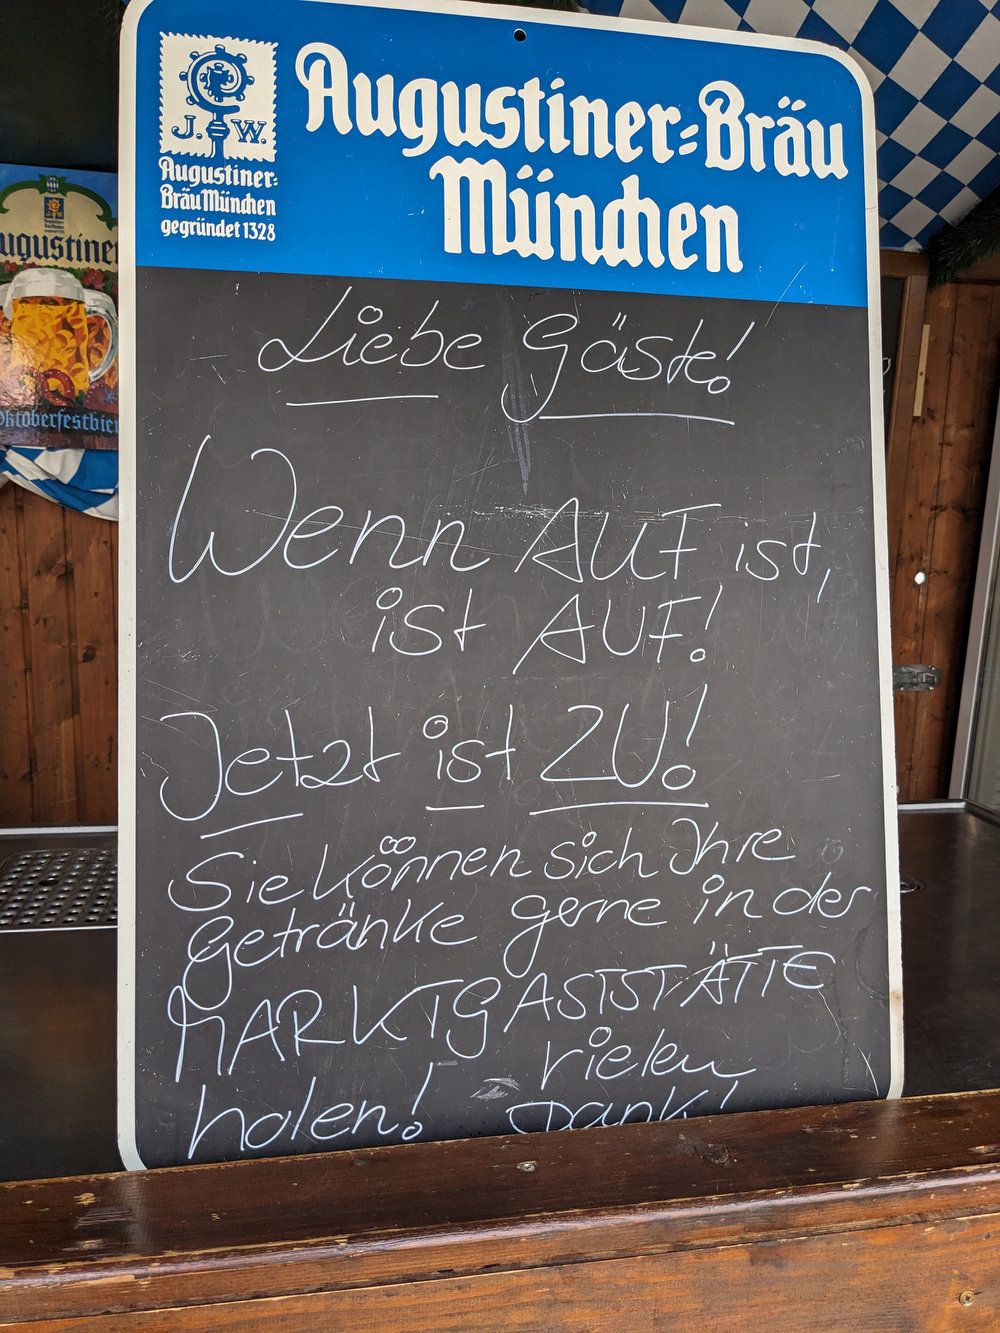 J. W.
Augustiner-
Bräu München
gegründet 1328
Augustiner-Bräu
München
ugustiner
Oktoberfestbier
Liebe Gäste!
Wenn AUF ist,
ist AUF!
Jetzt ist ZU!
Sie können sich Ihre
Getränke gerne in der
MARKTGASTSTÄTTE
holen! vielen
Dank!